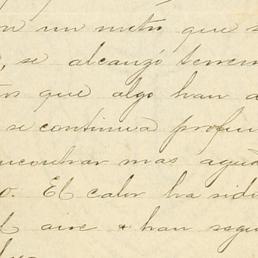 on un metro que s
, se alcanzó terren
os que algo han a
se continua profun
encontrar mas agua
o. El calor ha sido
el aire + han segu